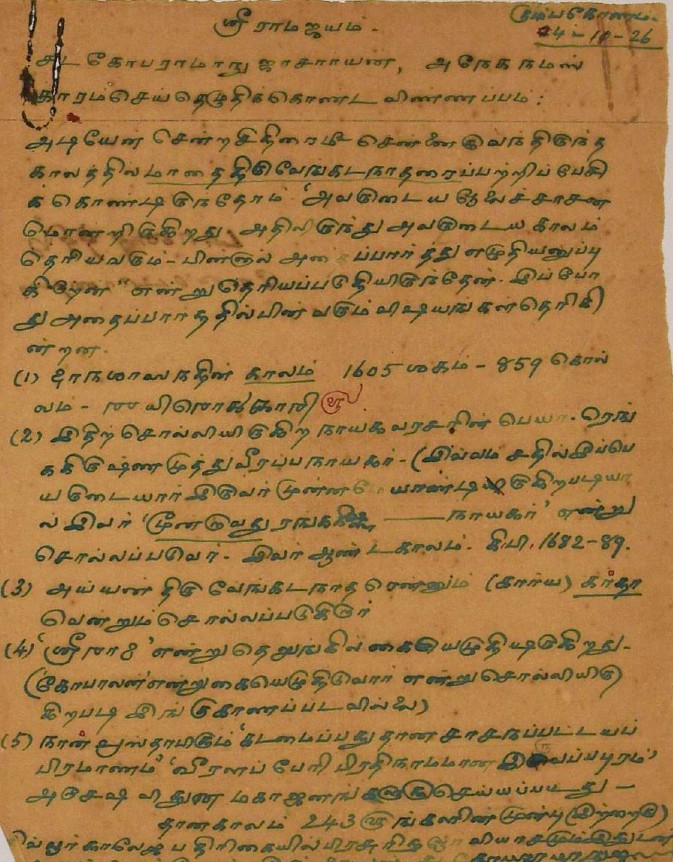 ஸ்ரீ ராமஜயம்.
கும்பகோணம்.
24-10-26
சடகோபராமாநுஜாசார்யன், அநேக நமஸ்
காரம் செய்தெழுதிக்கொண்ட விண்ணப்பம்:
அடியேன் சென்ற சித்திரைமீ சென்னை வந்திருந்த
காலத்தில் மாதை திருவேங்கடநாதரைப்பற்றிப் பேசி
க்கொண்டிருந்தோம் 'அவருடைய சாஸன
மொன்றிருகிறது அதிலிருந்து அவருடைய காலம்
தெரியவரும் - பின்னால் அதைப்பார்த்து எழுதியனுப்பு
கிறேன்" என்று தெரியப்படுத்தியிருந்தேன். இப்போ
து அதைப்பார்த்ததில் பின்வரும் விஷயங்கள் தெரிகி
ன்றன.
(1) காலம் 1605 சகம் - 859 கொல்
லம் -
(2) இதிற் சொல்லியிருகிற நாயகவரசரின் பெயர். ரெங்
ககிருஷ்ணமுத்துவீரப்பநாயகர் - (இவ்வம்சதில் இப்பெ
யருடையார் இருவர் முன்னமே யாண்டிருகிறபடியா
ல் இவர் 'மூன்றாவது ரங்ககிருஷ்ண ——— நாயகர்' என்று
சொல்லப்படுவர். இவர் ஆண்டகாலம். கி.பி. 1682-89.
(3) அய்யன் திருவேங்கடநாதரென்னும் (கார்ய) கர்தா
வென்றும் சொல்லப்படுகிறார்
(4) 'ஸ்ரீராம' என்று தெலுங்கில் கையெழுதியிருகிறது -
('கோபாலன்' என்று கையெழுதிடுவார் என்று சொல்லியிரு
கிறபடி இங்கு காணப்படவில்லை)
(5) நான் 'கடமைப்பற்று தான சாசநப்பட்டயப்
பிரமாணம்' 'வீரளப்பேரி பிரதிநாமமான
அசேஷ வித்வன் மகாஜனங்களுக்கு செய்யப்பட்டது -
தானகாலம் 243 முன்பு
காலேஜ் பத்திரிகையில்